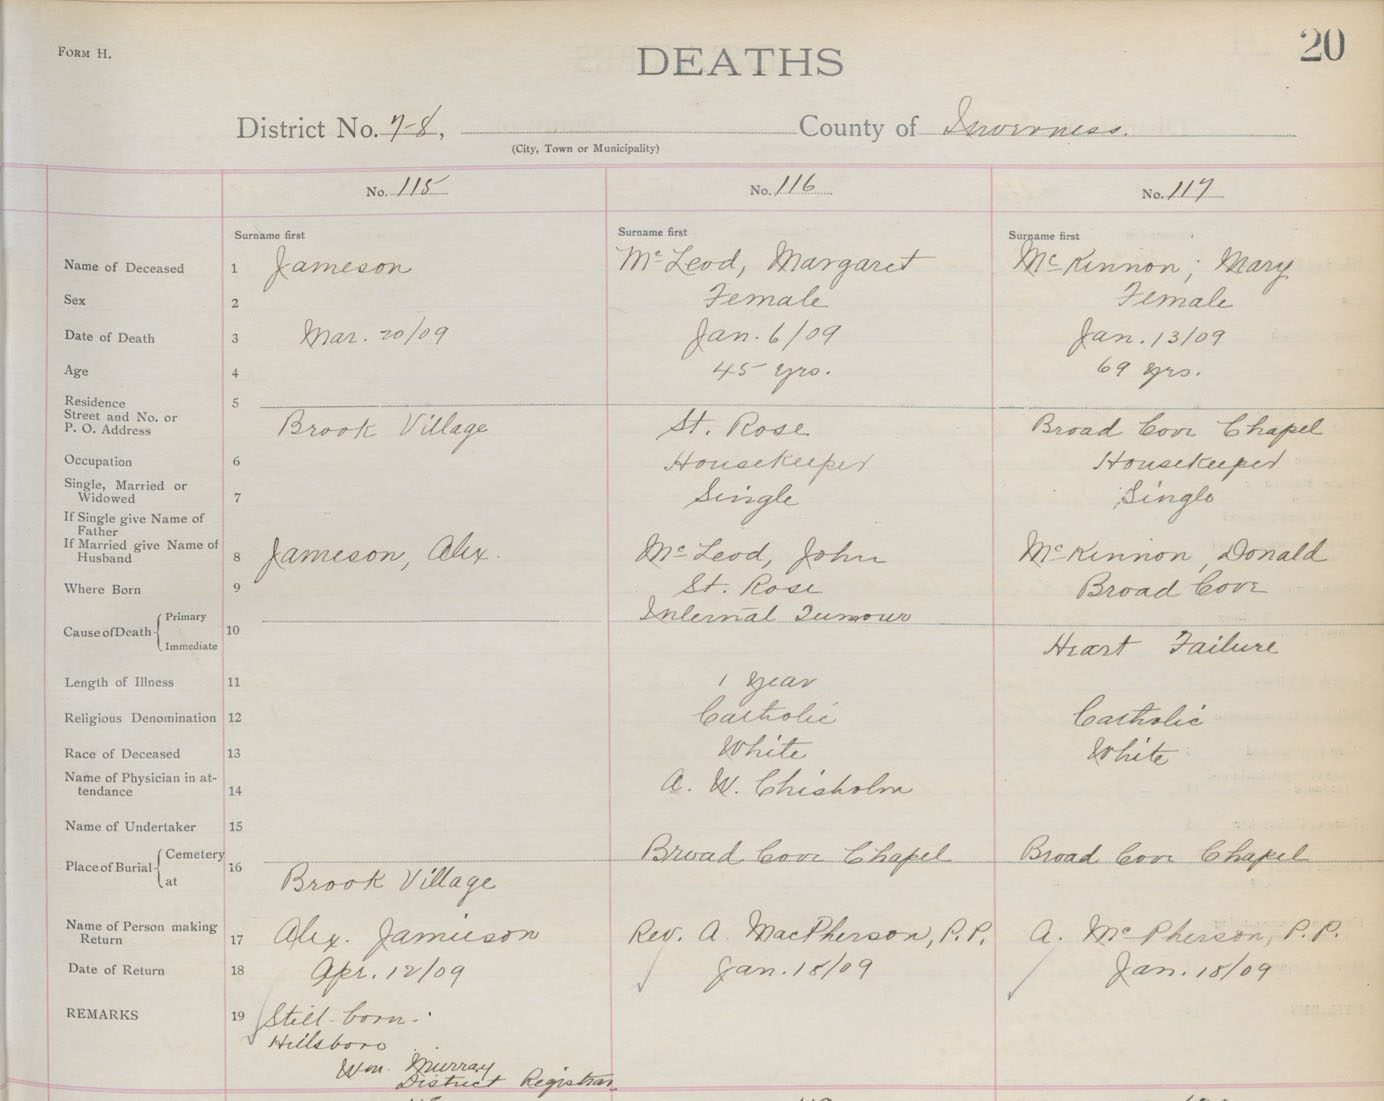 FORM H.
DEATHS
20
District No. 7-8, County of Inverness.
(City, Town or Municipality)
No. 115 No. 116 No. 117
Surname first Surname first Surname first
Name of Deceased 1 Jameson Mc Leod, Margaret Mc Kinnon, Mary
Sex 2 Female Female
Date of Death 3 Mar. 20/09 Jan. 6/09 Jan. 13/09
Age 4 45 yrs. 69 yrs.
Residence 5
Street and No. or
P. O. Address Brook Village St. Rose Broad Cove Chapel
Occupation 6 Housekeeper Housekeeper
Single, Married or
Widowed 7 Single Single
If Single give Name of
Father
If Married give Name of
Husband 8 Jameson, Alex. Mc Leod, John Mc Kinnon, Donald
Where Born 9 St. Rose Broad Cove
Cause of Death 10 Primary Internal Tumour
Immediate Heart Failure
Length of Illness 11 1 year
Religious Denomination 12 Catholic Catholic
Race of Deceased 13 White White
Name of Physician in at-
tendance 14 A. W. Chisholm
Name of Undertaker 15
Place of Burial 16 Cemetery Broad Cove Chapel Broad Cove Chapel
at Brook Village
Name of Person making
Return 17 Alex. Jamieson Rev. A. MacPherson, P.P. A. Mc Pherson, P.P.
Date of Return 18 Apr. 12/09 Jan. 18/09 Jan. 18/09
REMARKS 19 Still-born.
Hillsboro
Wm. Murray
District Registrar